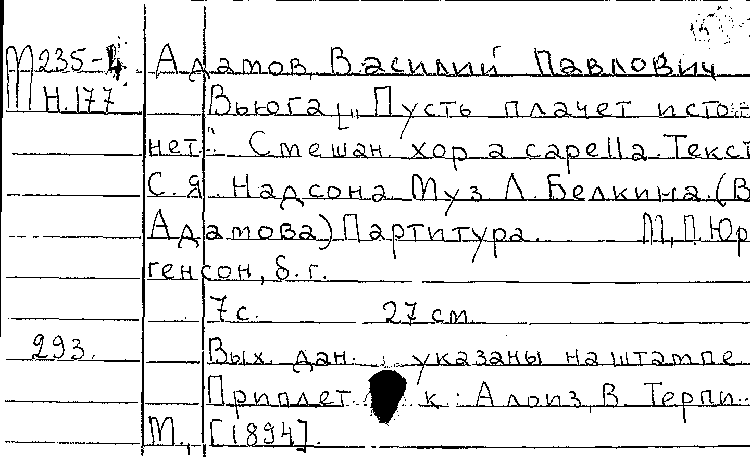 М235-4 Адамов, Василий Павлович
Н.177 Вьюга [„Пусть плачет и сто-
нет". Смешан. хор a capella. Текст
С. Я. Надсона Муз Л. Белкина. (В
Адамова) Партитура. М, П. Юр
генсон, б. г.
7 с. 27 см
293. Вых. дан. указаны на штампе
Приплет. к: Алоиз, В. Терпи..
М., [1894].